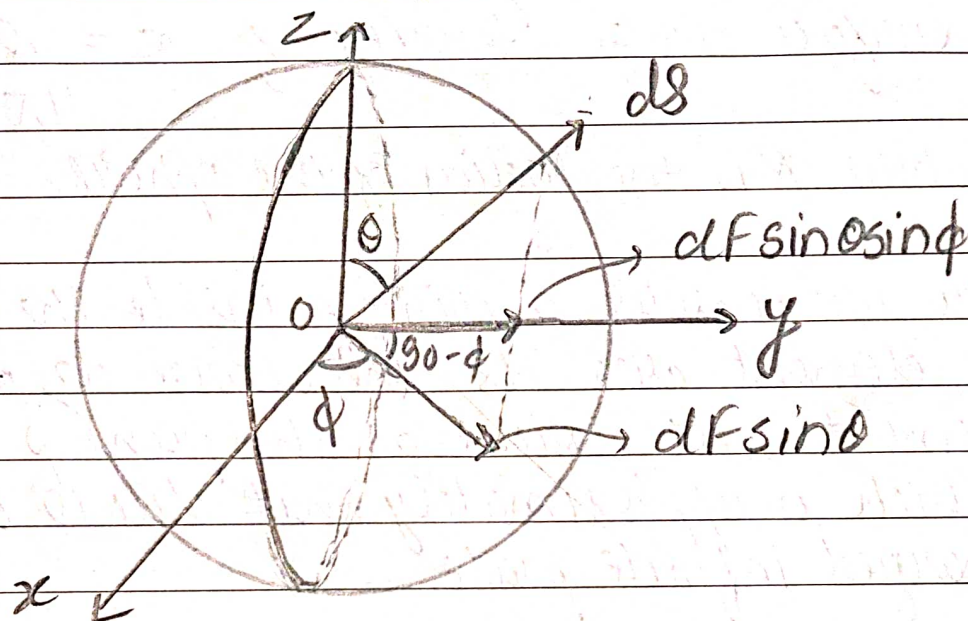 z
ds
θ
dFsinθsinϕ
O
y
90-ϕ
ϕ
dFsinθ
x